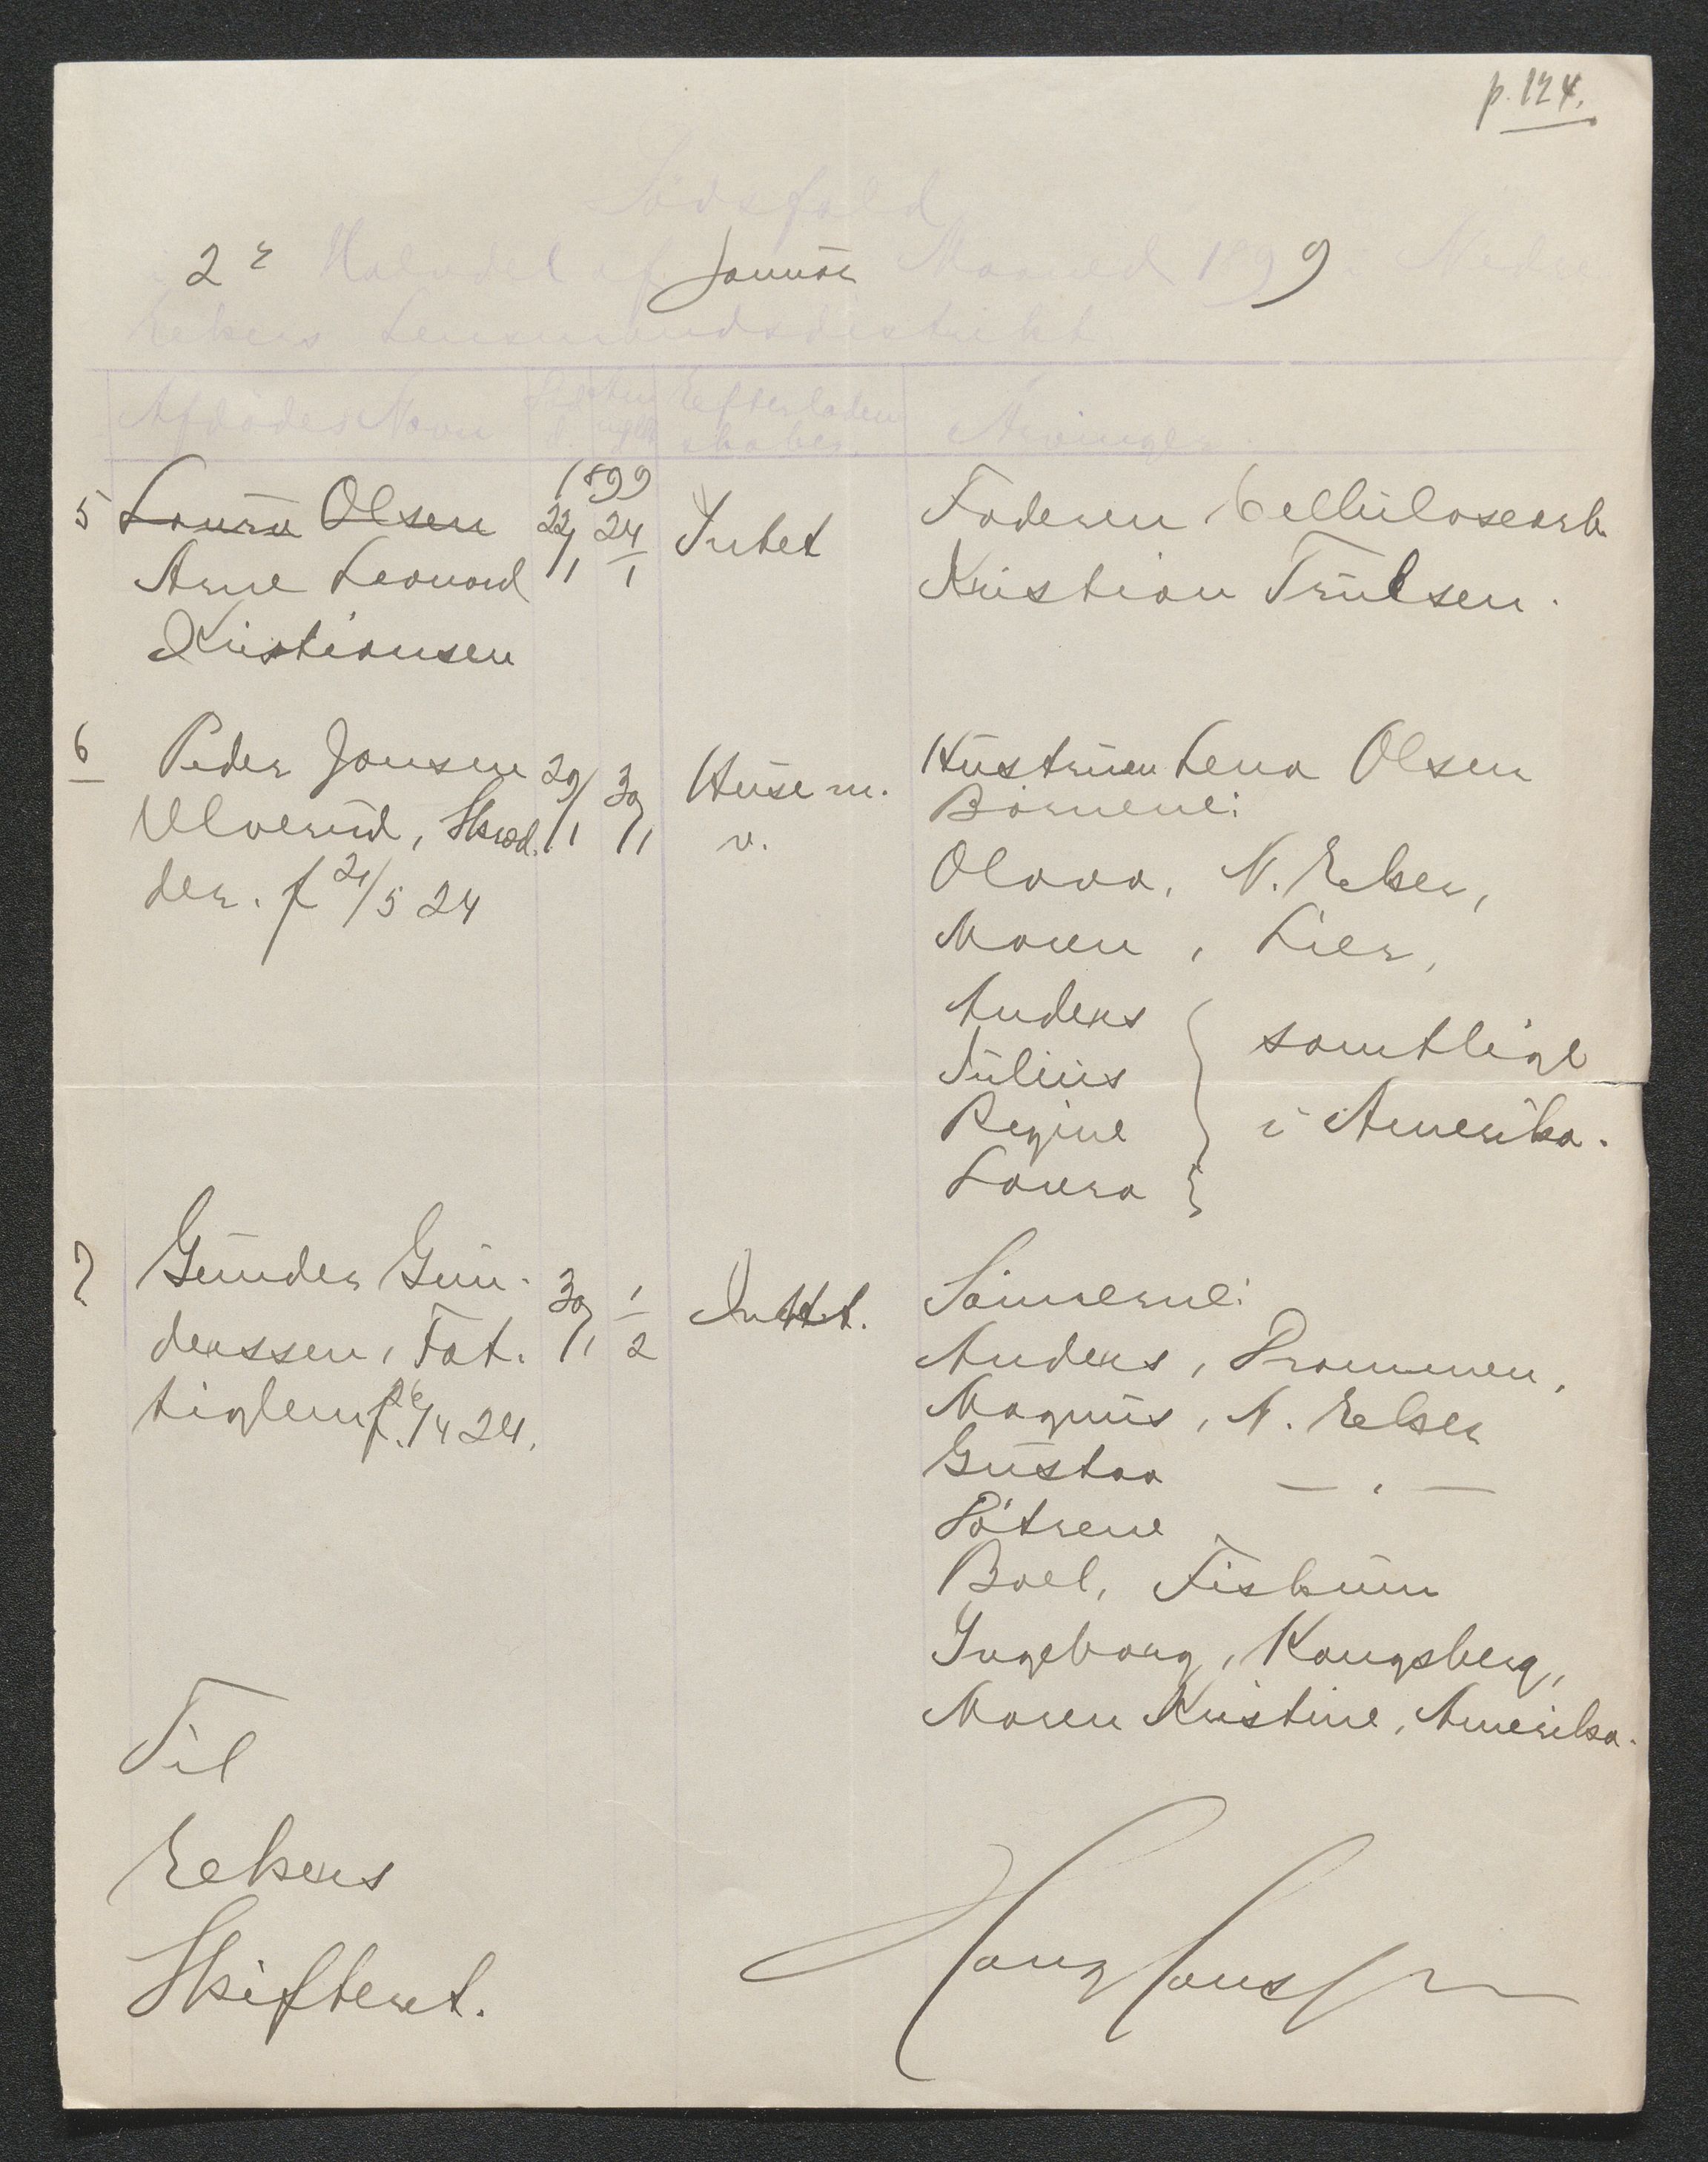 p. 124.
Dødsfald
2r Halvdel af Januar Maaned 1899 i Nedre
Eekers Lensmandsdistrikt.
Afdødes Navn Død d. Anmeldt Efterladenskaber. Arvinger.
1899
5 Laura Olsen 22/1 24/1 Intet Faderen Cellulosearb.
Arne Leonard Kristian Trulsen.
Kristiansen
6 Peder Jansen 29/1 30/1 Huse m. Hustruen Lena Olsen
Ulverud, Skræd- v. Børnene:
der. f 21/5 24 Olava, N. Eker,
Maren, Lier,
Anders } samtlige
Julius
Regine i Amerika.
Laura }
7 Gunder Gun- 30/1 1/2 Intet. Sønnerne:
derssen, Fat- Anders, Drammen,
tiglem. f. 26/4 24. Magnus, N. Eker
Gustav — " —
Døtrene
Boel, Fiskum
Ingeborg, Kongsberg,
Maren Kristine, Amerika.
Til
Eekers
Skifteret.